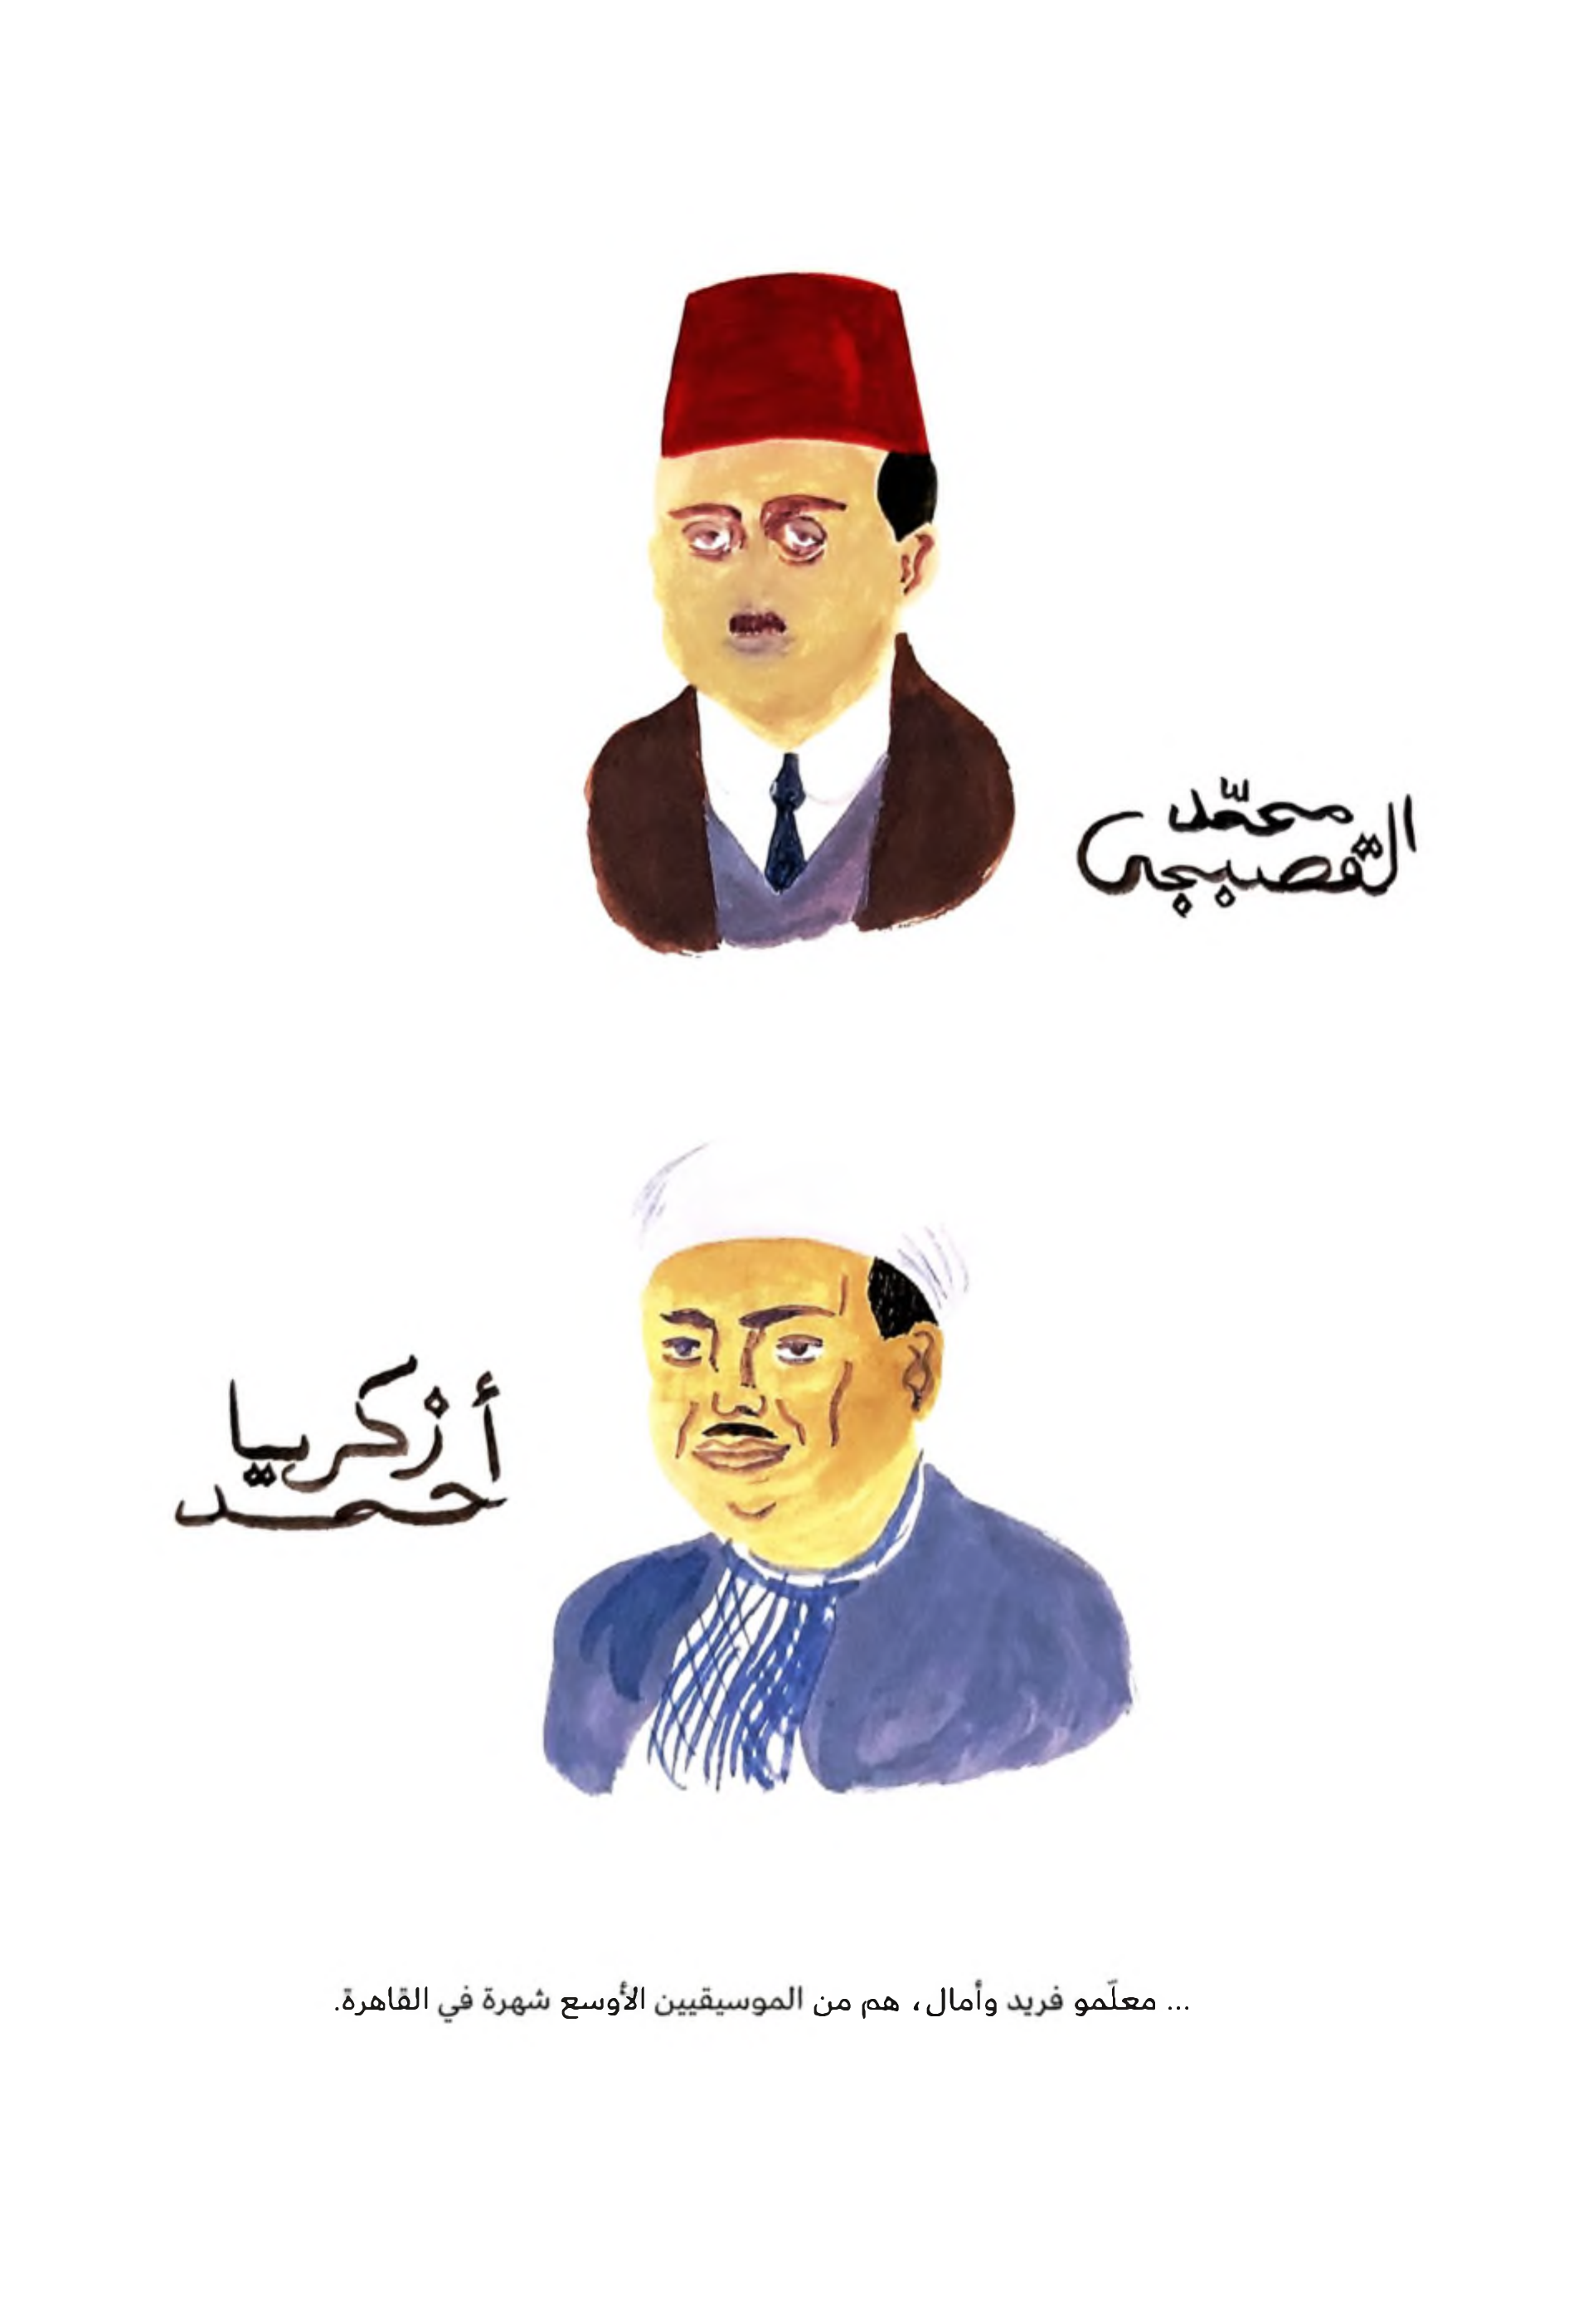 محمّد
القصبجي
زكريا
أحمد
... معلّمو فريد وأمال، هم من الموسيقيين الأوسع شهرة في القاهرة.